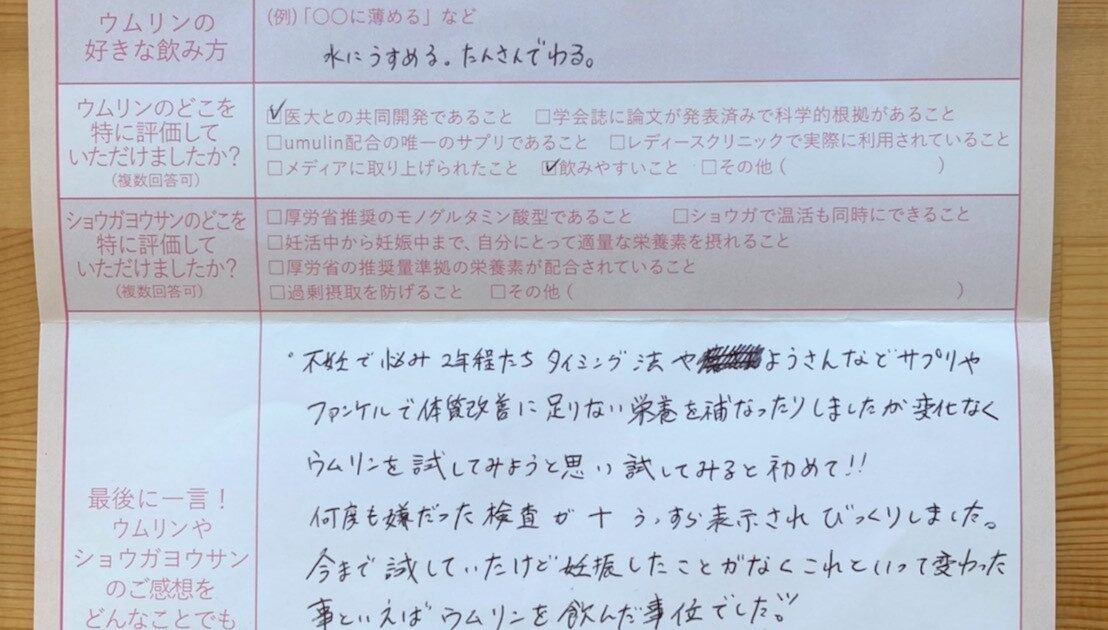 ウムリンの
好きな飲み方
(例)「〇〇に薄める」など
水にうすめる。たんさんでわる。
ウムリンのどこを
特に評価して
いただけましたか?
(複数回答可)
☑医大との共同開発であること □学会誌に論文が発表済みで科学的根拠があること
□umulin配合の唯一のサプリであること □レディースクリニックで実際に利用されていること
□メディアに取り上げられたこと ☑飲みやすいこと □その他( )
ショウガヨウサンのどこを
特に評価して
いただけましたか?
(複数回答可)
□厚労省推奨のモノグルタミン酸型であること □ショウガで温活も同時にできること
□妊活中から妊娠中まで、自分にとって適量な栄養素を摂れること
□厚労省の推奨量準拠の栄養素が配合されていること
□過剰摂取を防げること □その他( )
最後に一言!
ウムリンや
ショウガヨウサン
のご感想を
どんなことでも
不妊で悩み2年程たちタイミング法やようさんなどサプリや
ファンケルで体質改善に足りない栄養を補なったりしましたが変化なく
ウムリンを試してみようと思い試してみると初めて!!
何度も嫌だった検査が+うっすら表示されびっくりしました。
今まで試していたけど妊娠したことがなくこれといって変わった
事といえばウムリンを飲んだ事位でした。